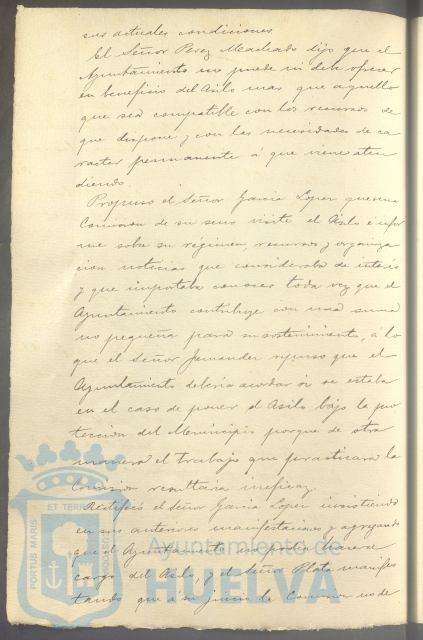 sus actuales condiciones.
El Señor Perez Machado dijo que el
Ayuntamiento no puede ni debe ofrecer
en beneficio del Asilo mas que aquello
que sea compatible con los recursos de
que dispone y con las necesidades de ca
racter permanente á que viene aten
diendo.
Propuso el Señor Garcia Lopez que una
Comision de su seno visite el Asilo é infor
me sobre su régimen, recursos y organiza
cion noticias que consideraba de interés
y que importaba conocer toda vez que el
Ayuntamiento contribuye con una suma
no pequeña para su sostenimiento, á lo
que el Señor Fernandez repuso que el
Ayuntamiento debería acordar si se estaba
en el caso de poner el Asilo bajo la pro
teccion del Municipio porque de otra
manera el trabajo que practicara la
Comision resultaria ineficaz.
Rectificó el Señor Garcia Lopez insistiendo
en sus anteriores manifestaciones y agregando
que el Ayuntamiento no podia hacerse
cargo del Asilo, y el Señor Plata manifes
tando que á su juicio la Comision no de
PORTUS MARIS ET TERRAE CUSTODIA
Ayuntamiento de
HUELVA